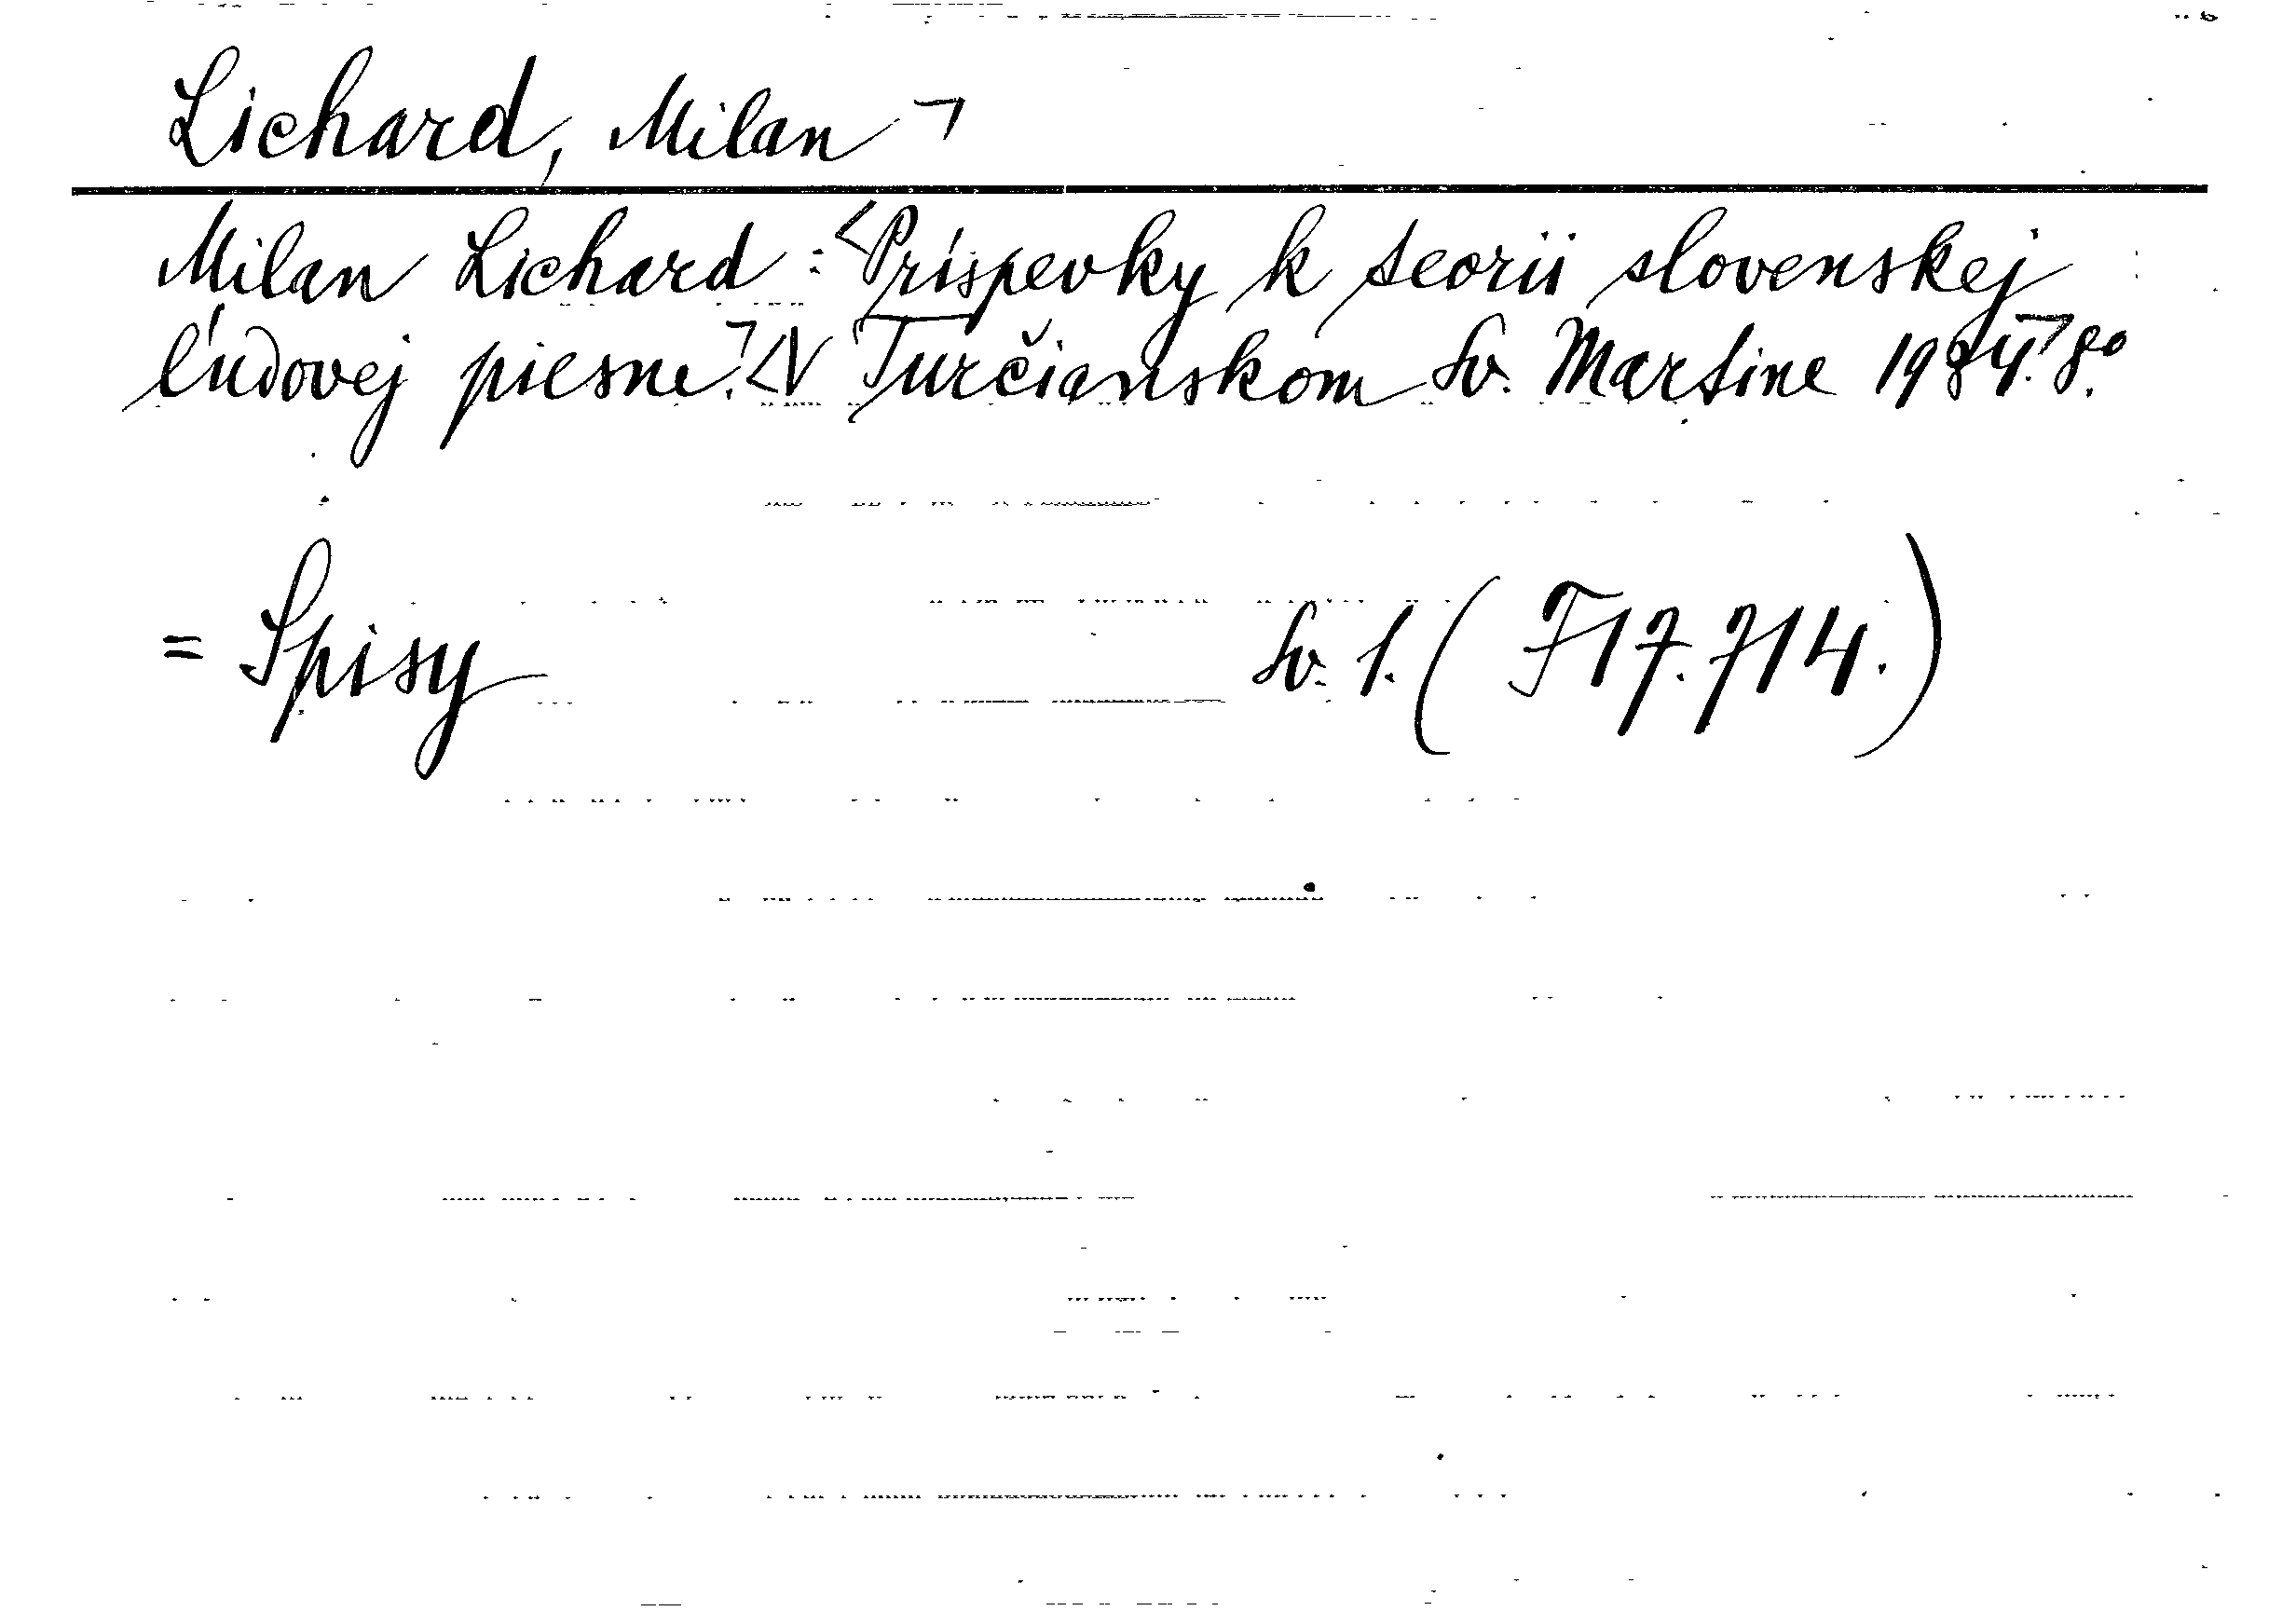 Lichard, Milan ¬
Milan Lichard: <Príspevky k teorii slovenskej
ľudovej piesne.¬ <V Turčianskom Sv. Martine 1934.¬ 8.°
= Spisy Sv. 1. (F17.714.)